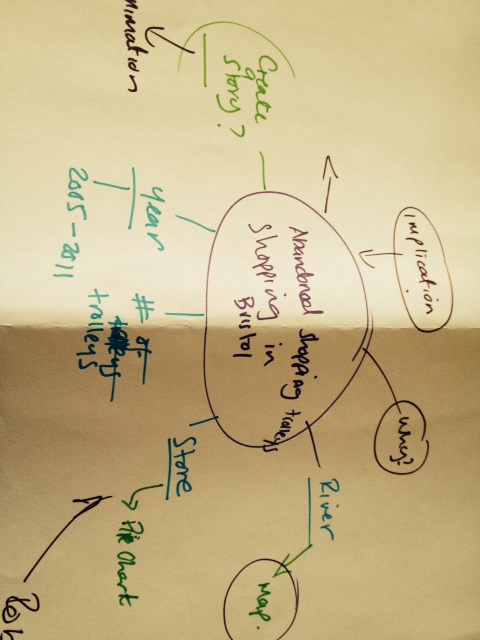 Implication
Why?
River
Map.
Abandoned shopping trolleys
shopping in
Bristol
Create
a
story?
nimation
year
2005-2011
# of
trolleys
trolleys
Store
Pie Chart
Rob